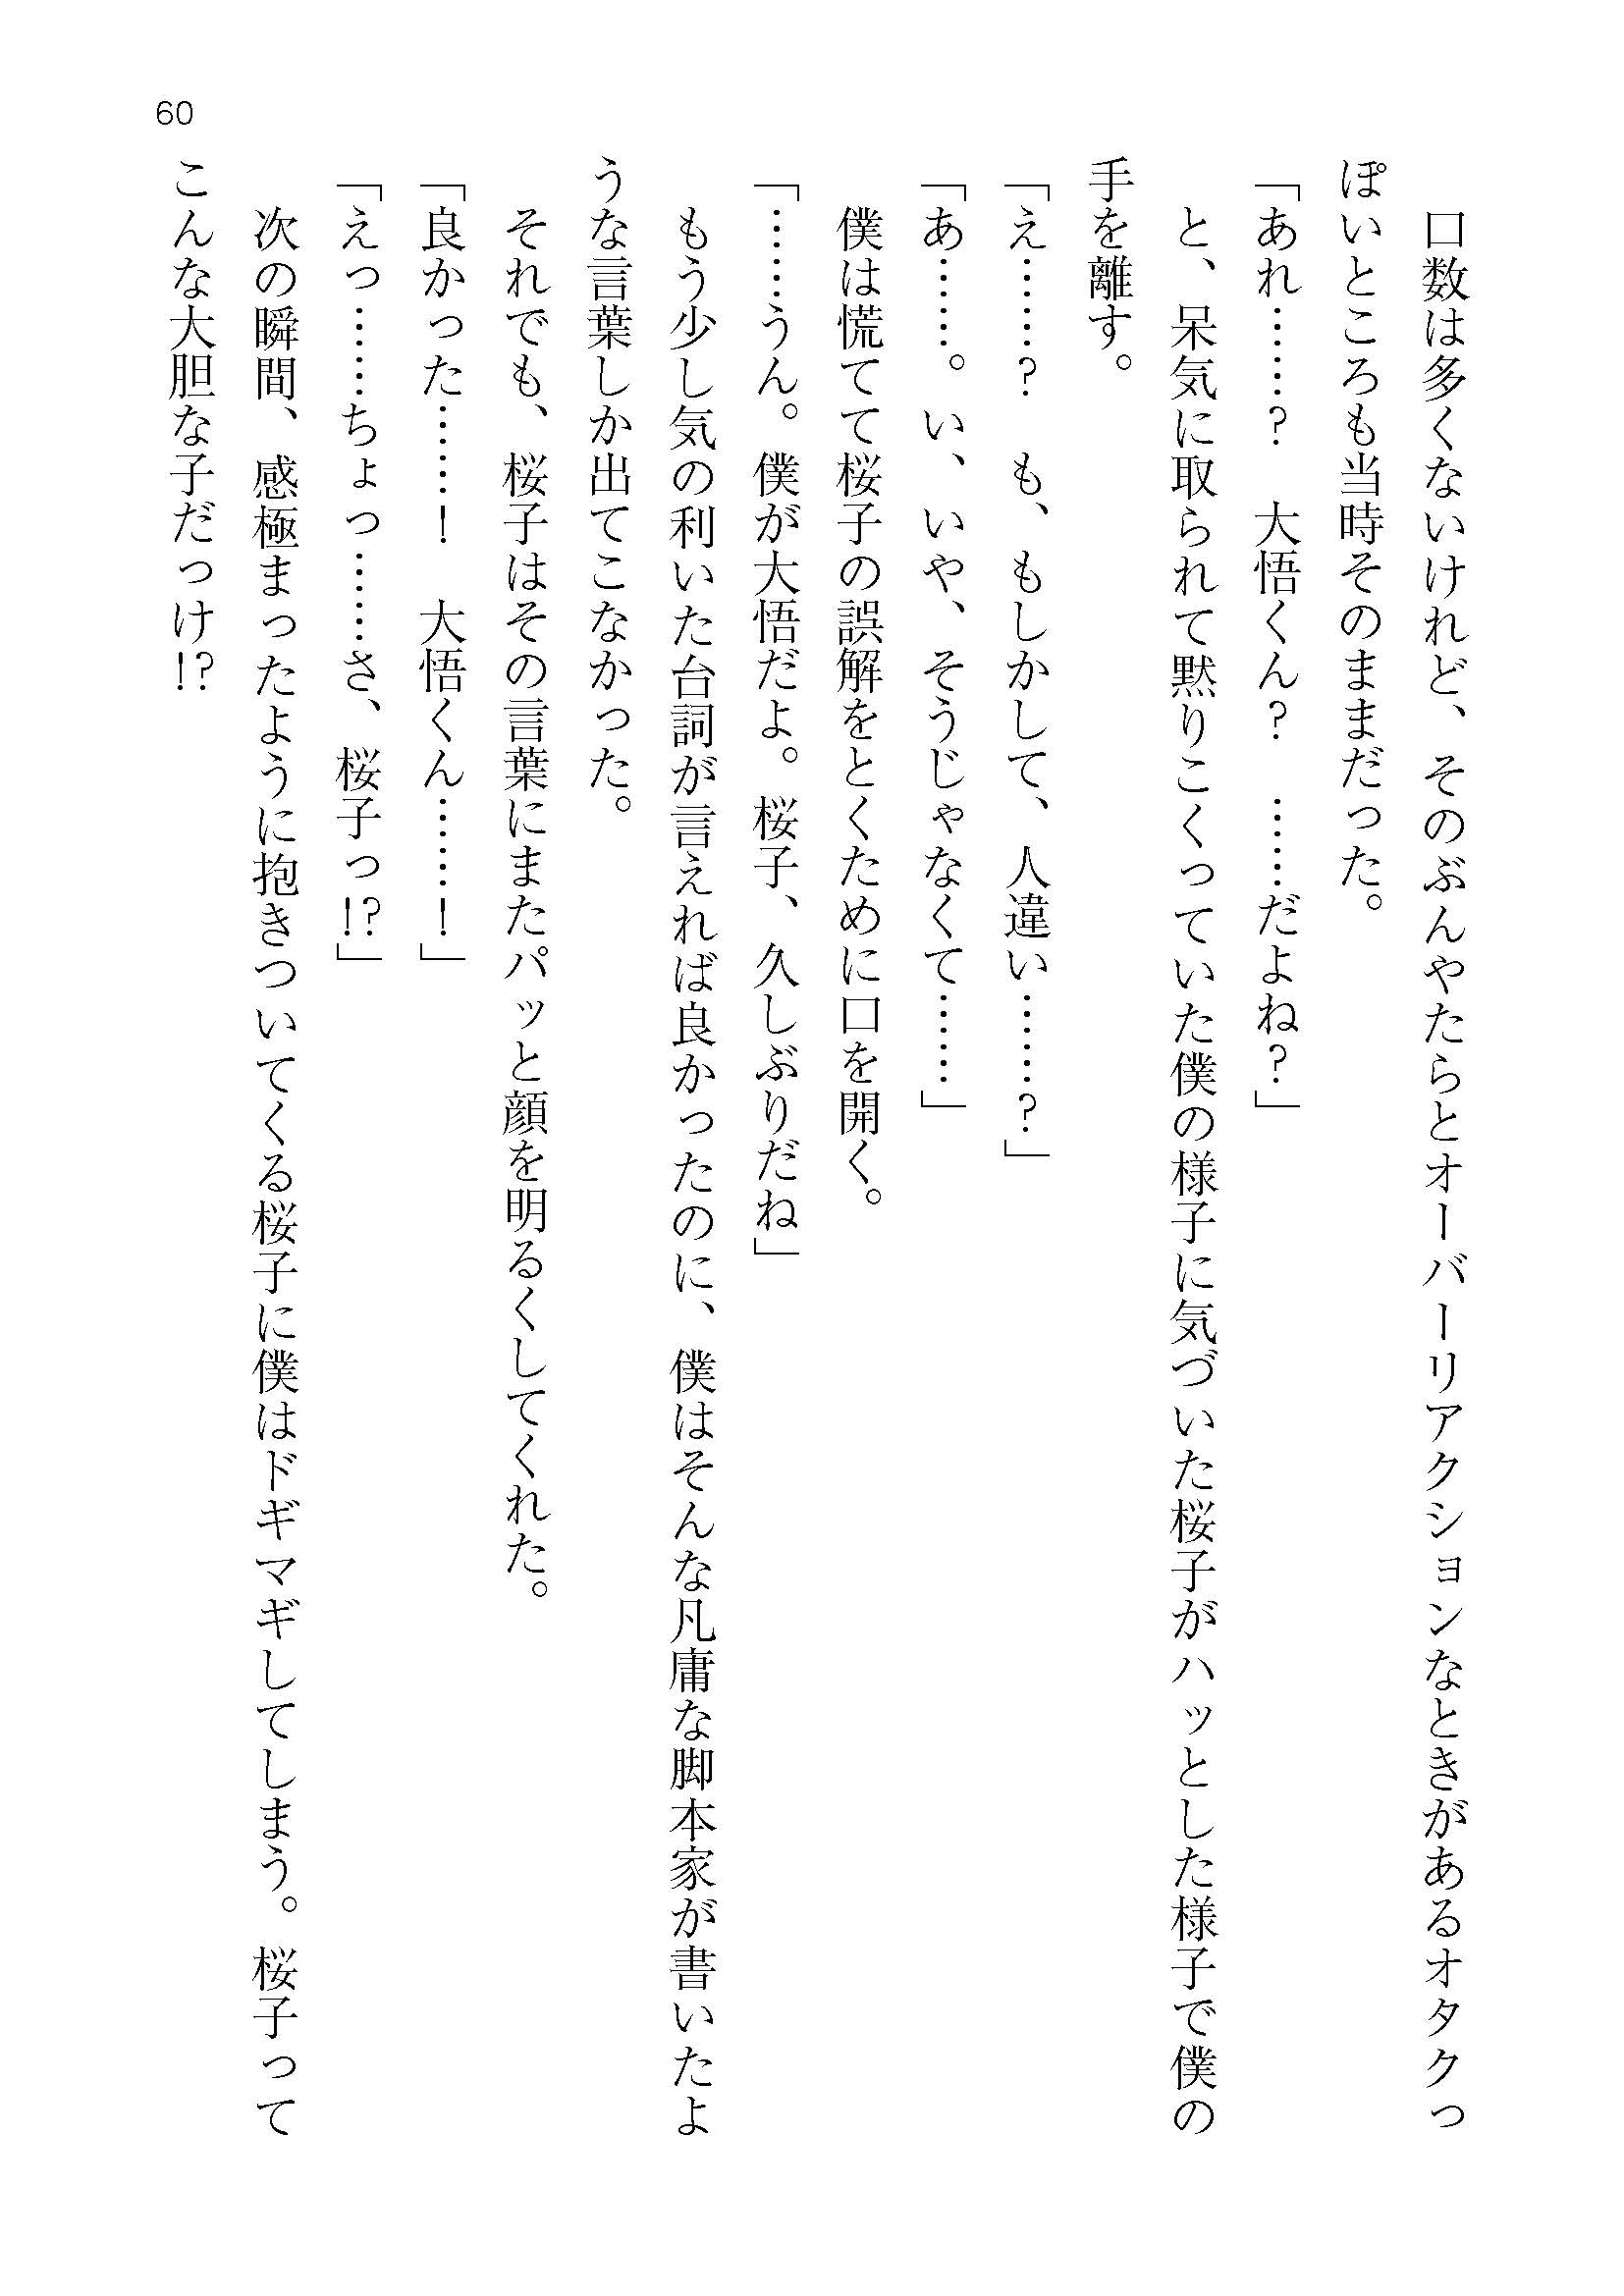 60
　口数は多くないけれど、そのぶんやたらとオーバーリアクションなときがあるオタクっ
ぽいところも当時そのままだった。
「あれ……？　大悟くん？　……だよね？」
　と、呆気に取られて黙りこくっていた僕の様子に気づいた桜子がハッとした様子で僕の
手を離す。
「え……？　も、もしかして、人違い……？」
「あ……。い、いや、そうじゃなくて……」
　僕は慌てて桜子の誤解をとくために口を開く。
「……うん。僕が大悟だよ。桜子、久しぶりだね」
　もう少し気の利いた台詞が言えれば良かったのに、僕はそんな凡庸な脚本家が書いたよ
うな言葉しか出てこなかった。
　それでも、桜子はその言葉にまたパッと顔を明るくしてくれた。
「良かった……！　大悟くん……！」
「えっ……ちょっ……さ、桜子っ!?」
　次の瞬間、感極まったように抱きついてくる桜子に僕はドギマギしてしまう。桜子って
こんな大胆な子だっけ!?